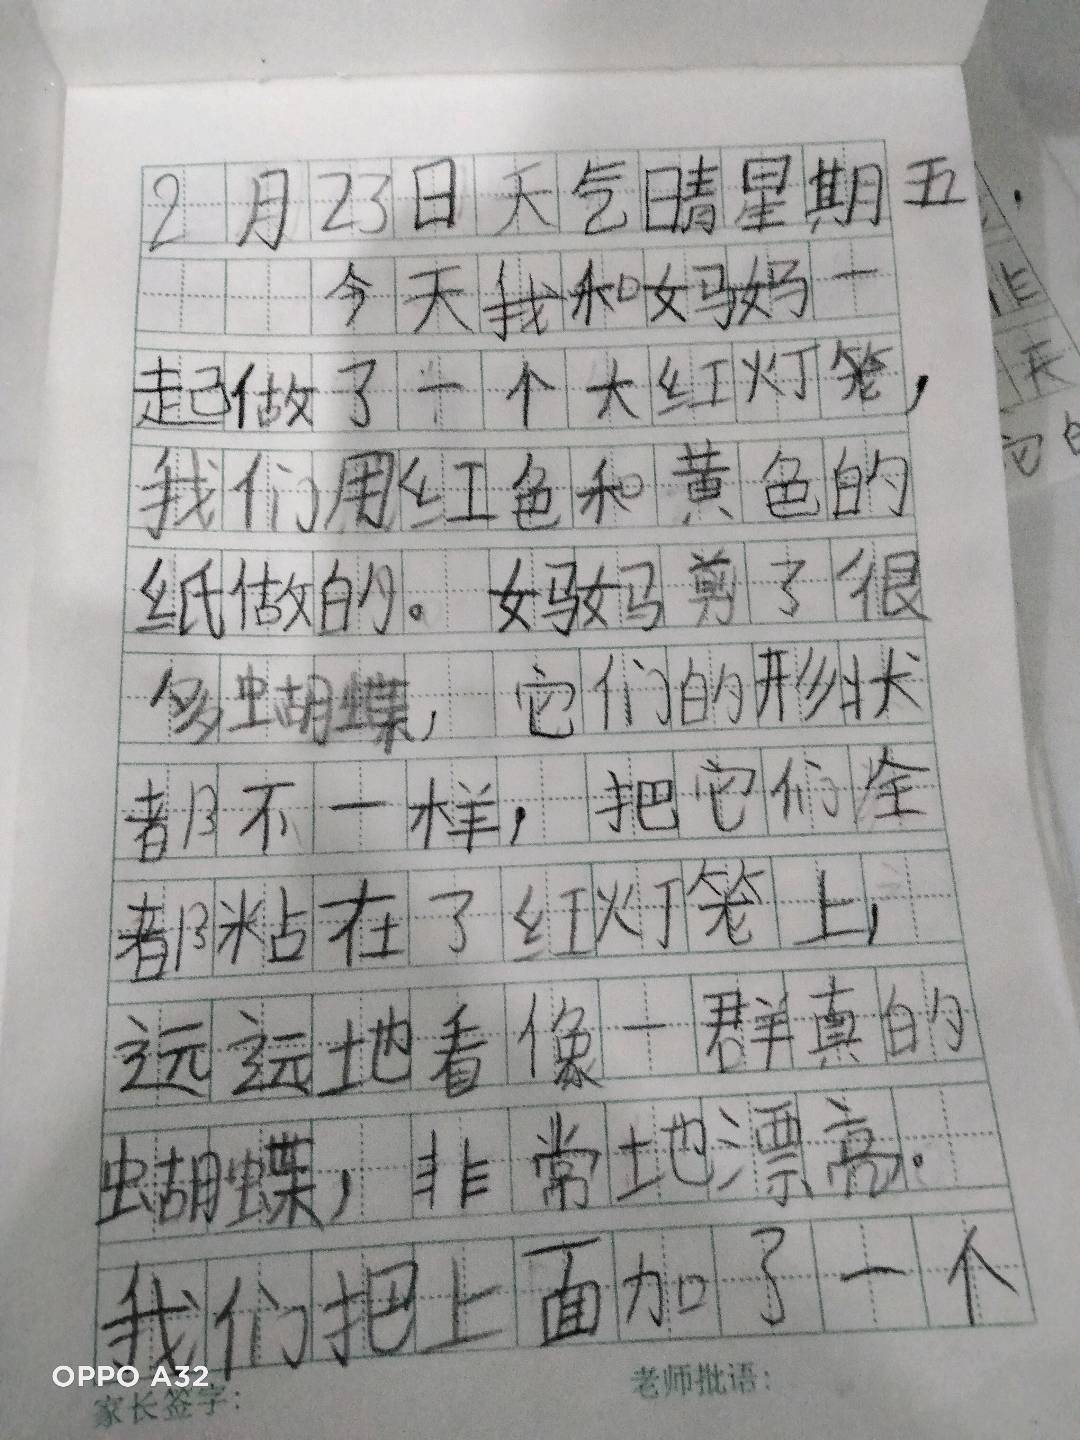 2月23日天气晴星期五
今天我和妈妈一
起做了一个大红灯笼,
我们用红色和黄色的
纸做的。妈妈剪了很
多蝴蝶,它们的形状
都不一样,把它们全
都粘在了红灯笼上,
远远地看像一群真的
蝴蝶,非常地漂亮。
我们把上面加了一个
OPPO A32
家长签字:
老师批语: